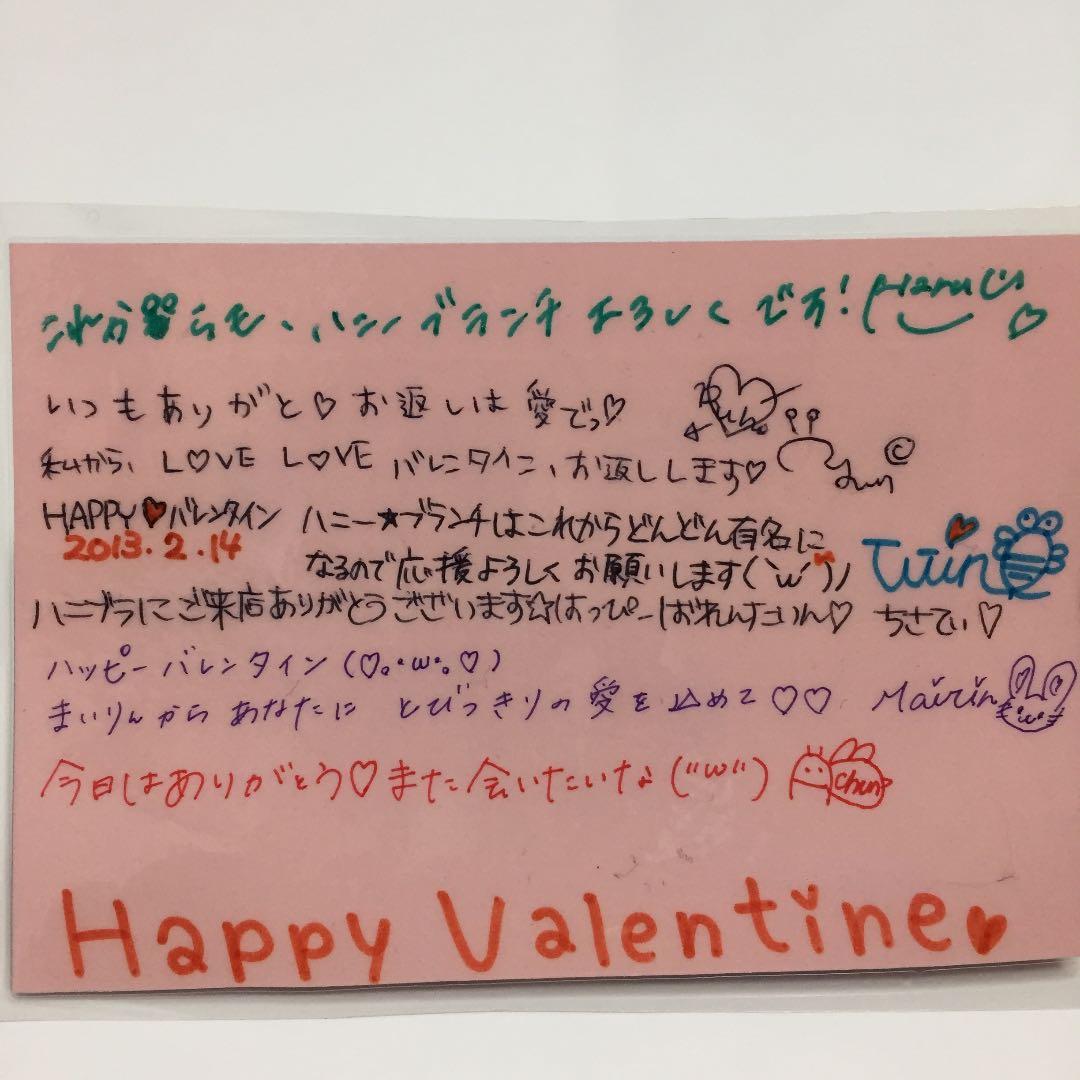 これからも、ハニーブランチよろしくです! Haru ♡
いつもありがと♡お返しは愛でっ♡
私から、LOVE LOVE バレンタイン、お返しします♡
HAPPY♥バレンタイン ハニー★ブランチはこれからどんどん有名に
2013.2.14 なるので応援よろしくお願いします(`ω´)ノ Twin
ハニブラにご来店ありがとうございます☆はっぴーばれんたいん♡ ちさてぃ♡
ハッピーバレンタイン(♡｡･ω･｡♡)
まいりんからあなたに とびっきりの愛を込めて♡♡ Mairin
今日はありがとう♡また会いたいな("ω") Chun
Happy Valentine♥